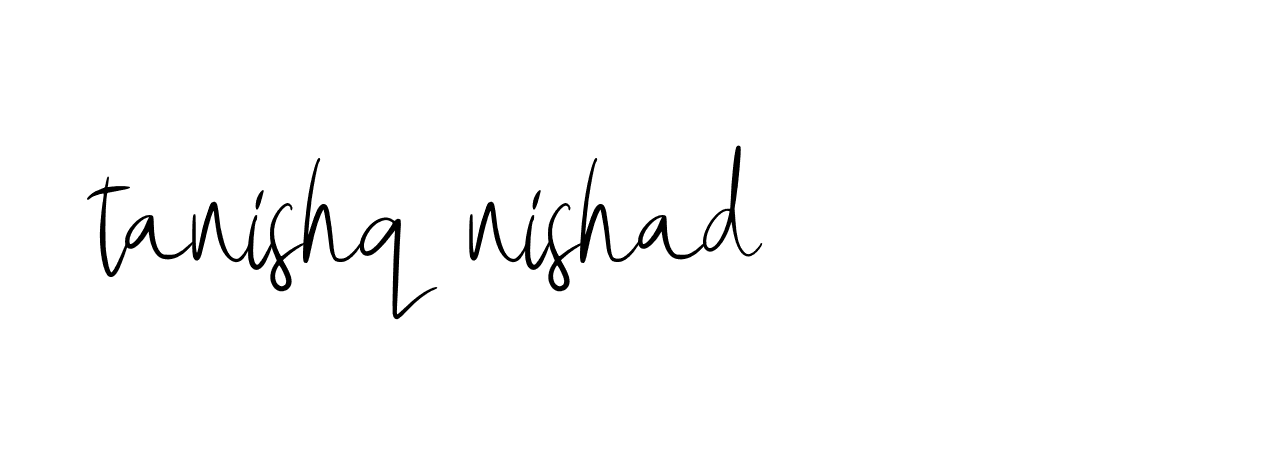 tanishq nishad